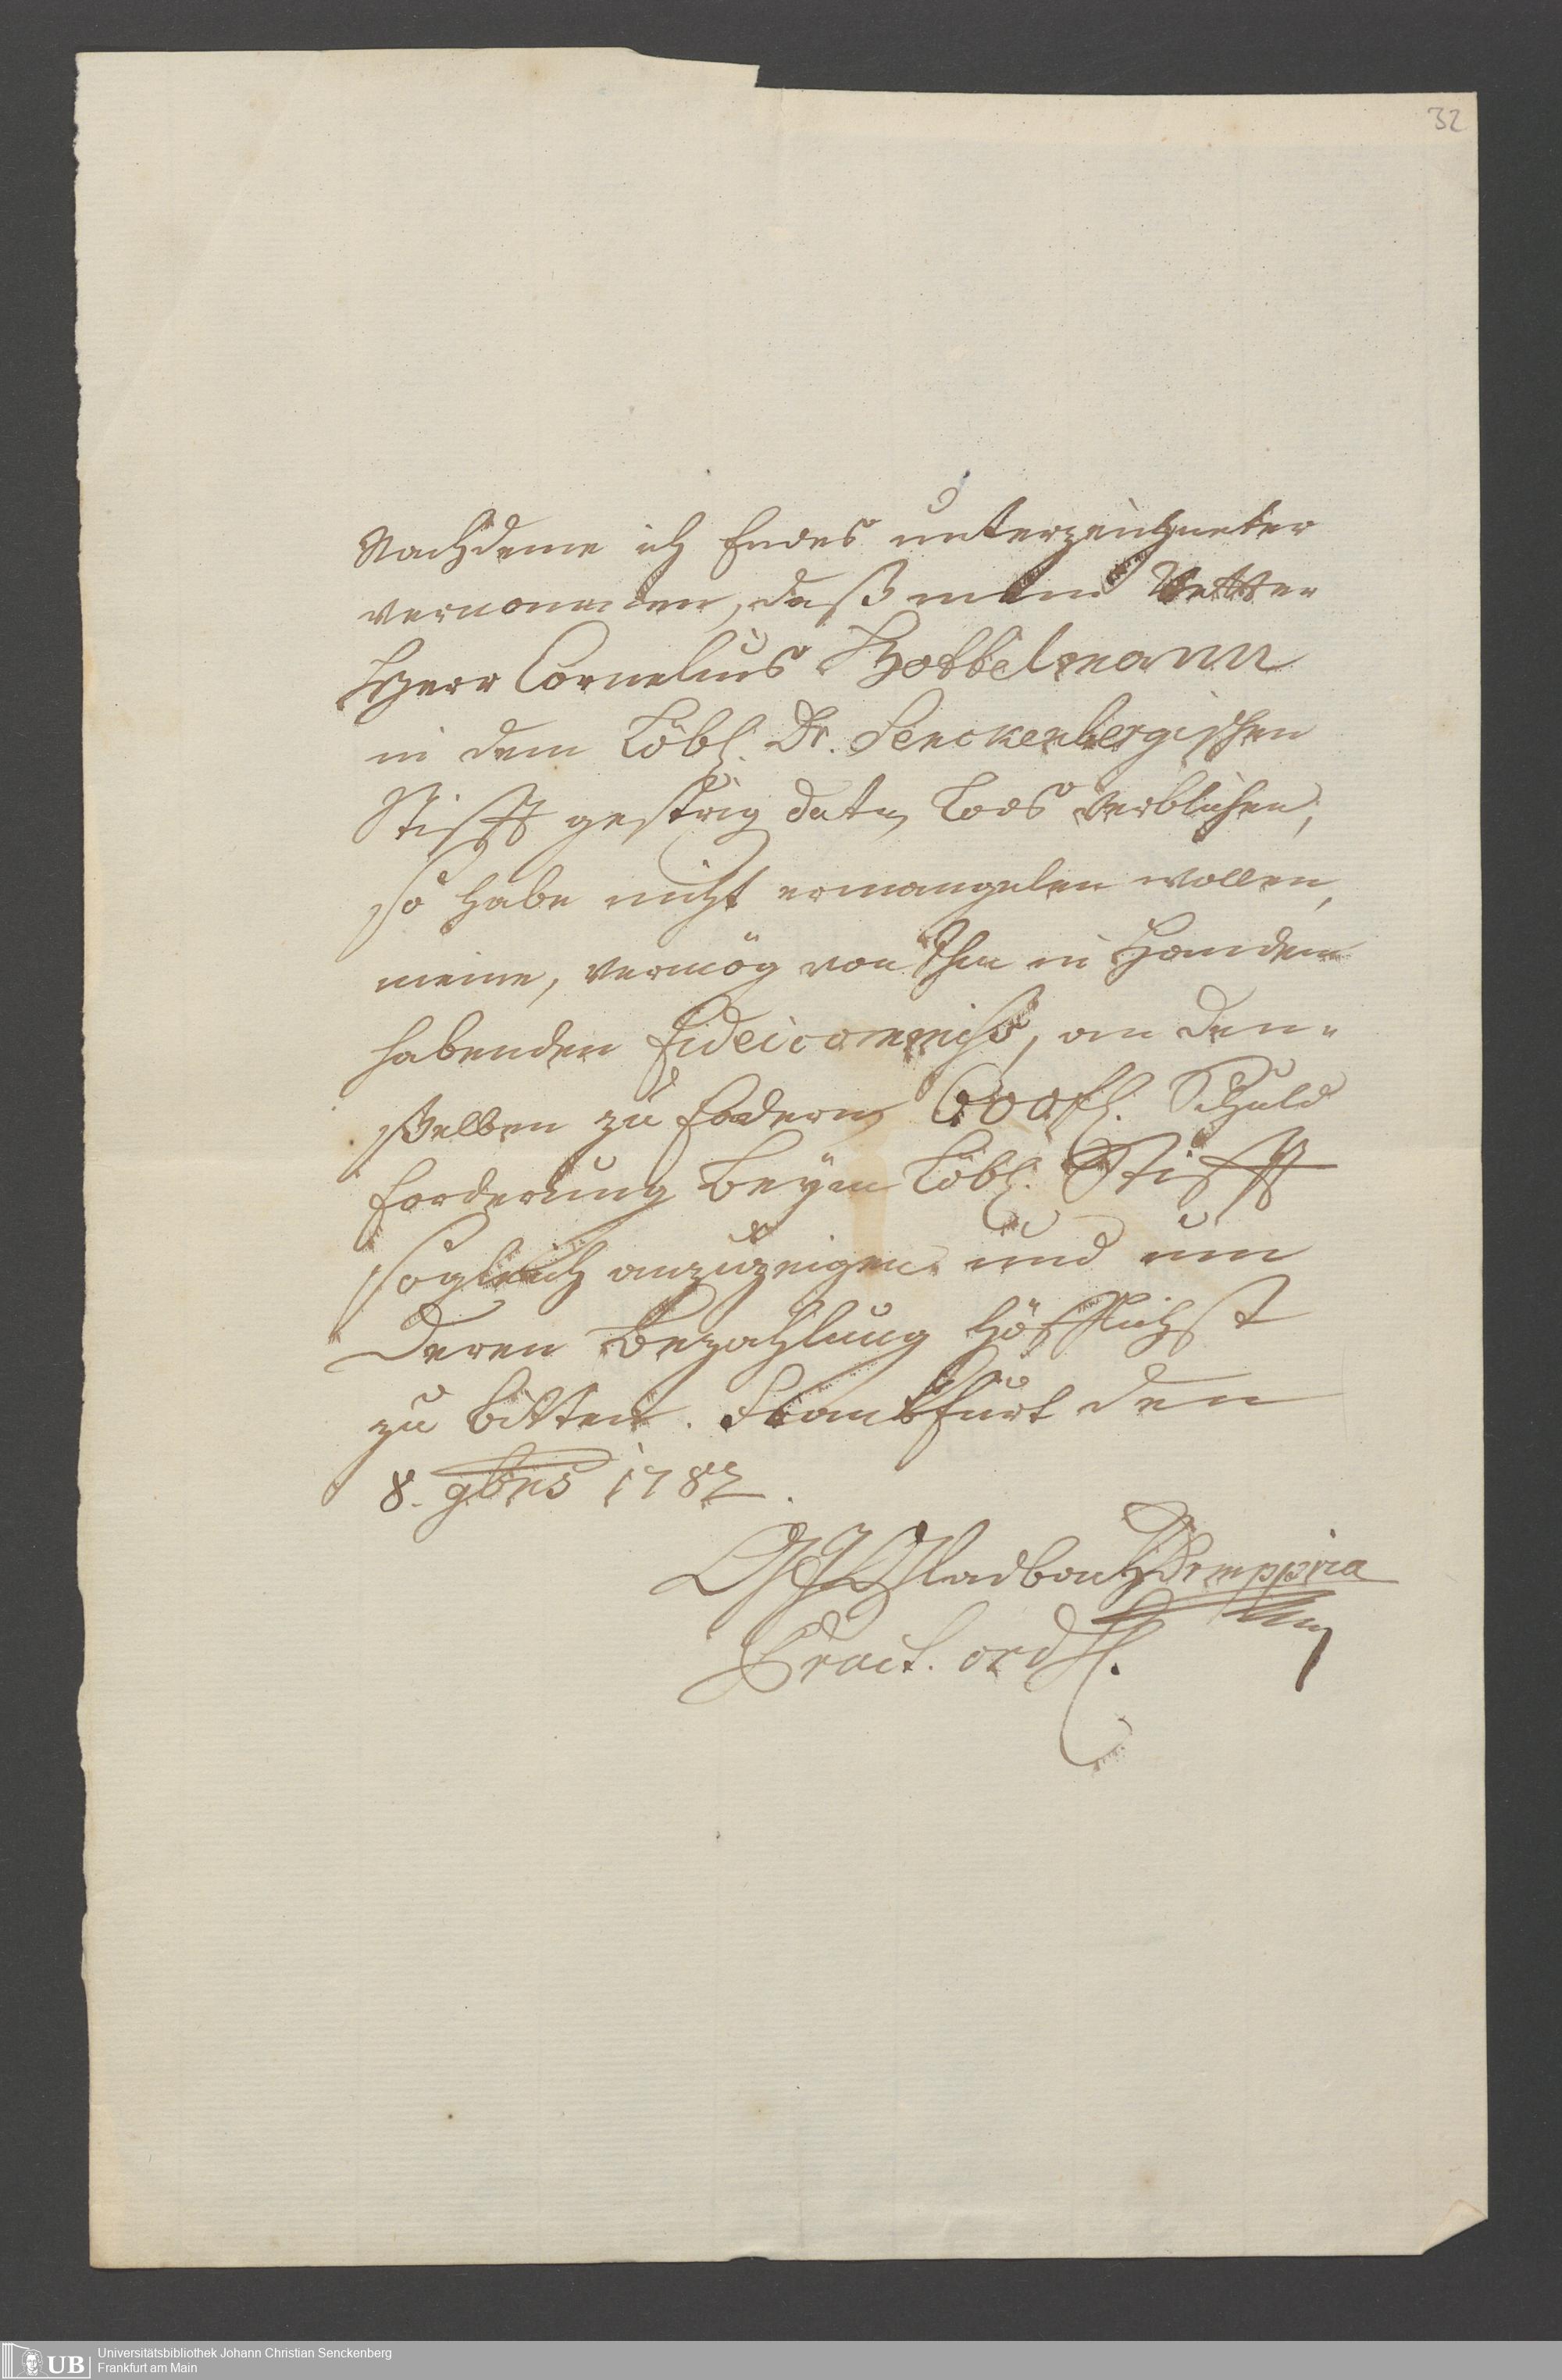 32
Nachdeme ich Endes unterzeichneter
vernommen, daß mein Vetter
Herr Cornelius Hobbelmann
in dem Löbl. Dr. Senckenbergischen
Stifft gestrig dato Tods verblichen,
so habe nicht ermangelen wollen,
meine, vermög von Ihm in Handen
habenden Fideicommiss, an den-
selben zu fodern 600 fl. Schuld
forderung beym Löbl. Stifft
sogleich anzuzeigen und um
deren Bezahlung höfflichst
zu bitten. Franckfurt den
8. 9bris 1782.
Gladbach Dr mppria
Pract. ord
UB
Universitätsbibliothek Johann Christian Senckenberg
Frankfurt am Main